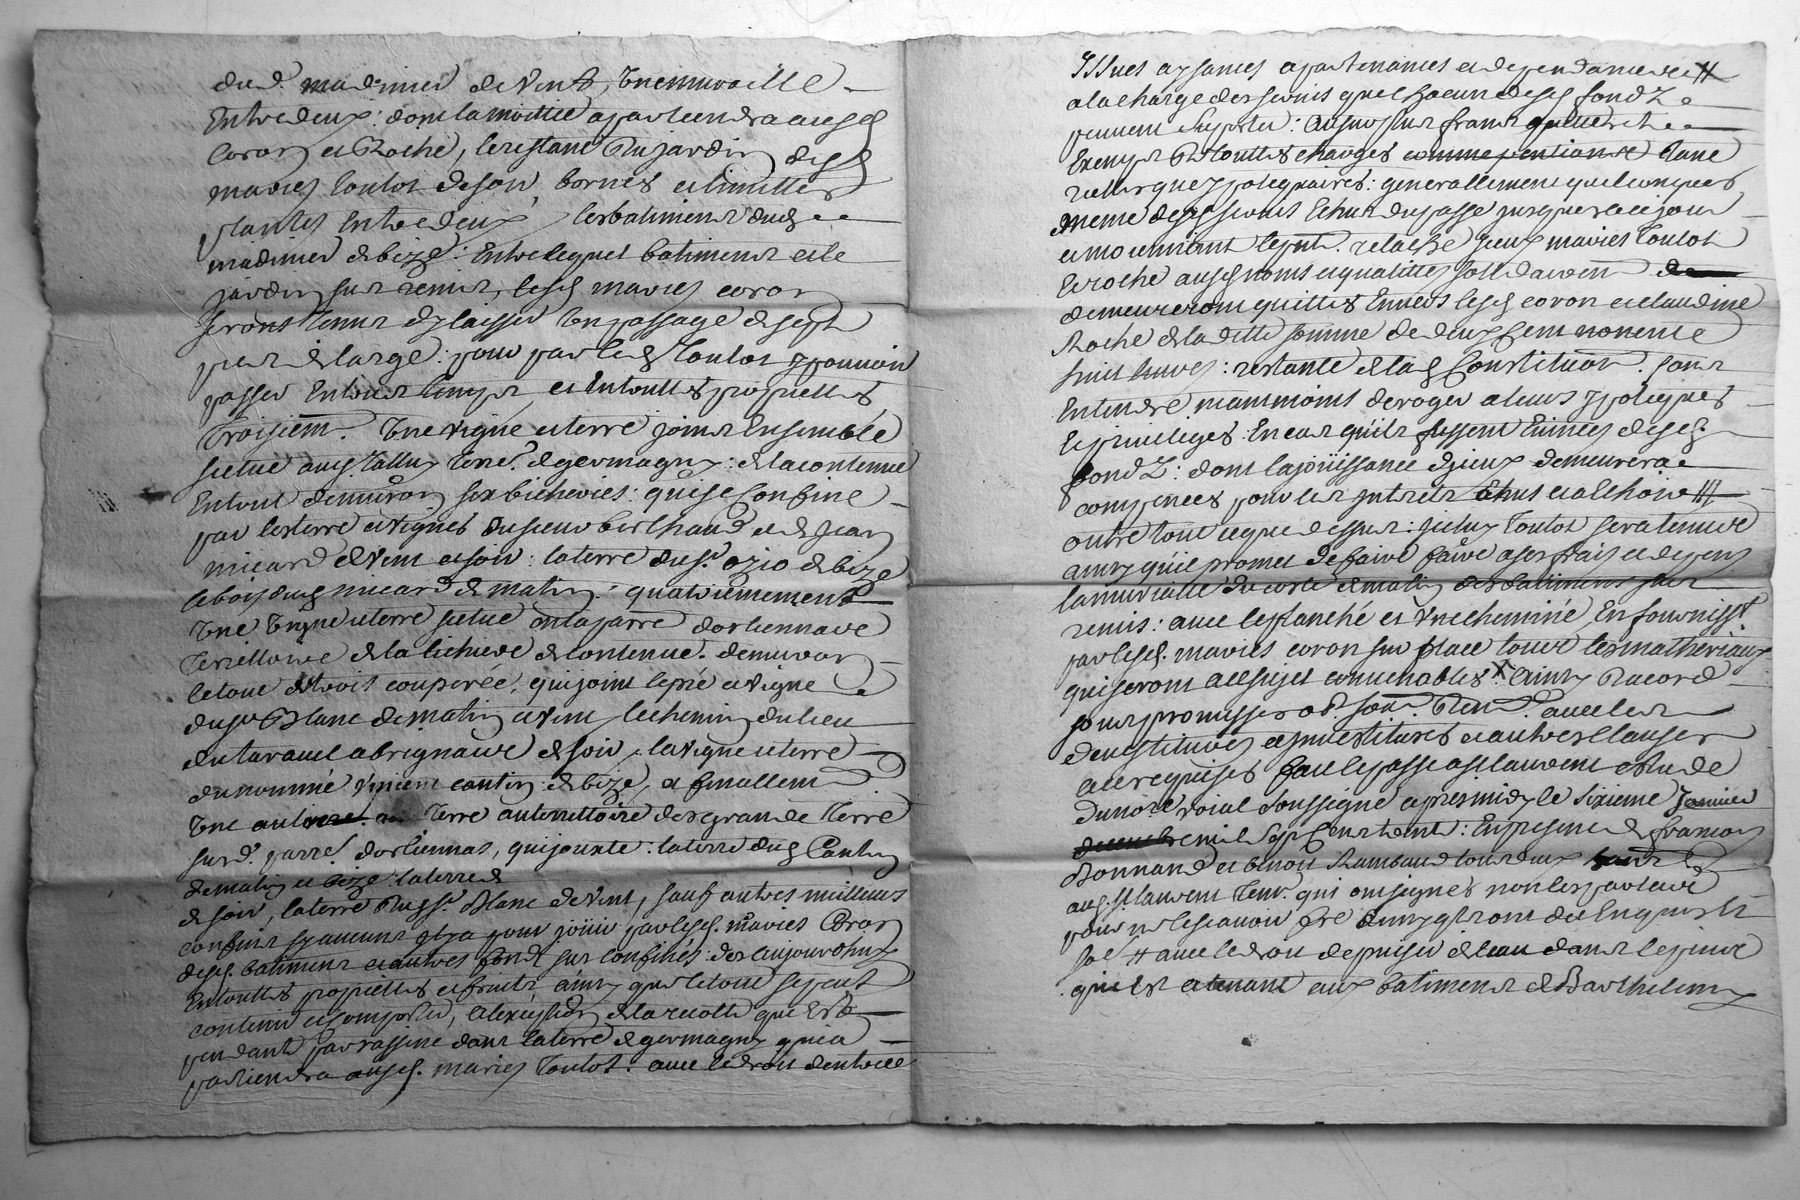 dud. madinier de vent, une muraille
Entredeux; dont la moitié apartiendra ausd
Coron et Roche, le restant du jardin desd
mariés Toulot de soir, bornes et limittes
plantés Entredeux, les batiments dud
madinier de bize: Entre lequel batiment et le
jardin sus remis, lesd mariés coron
seront tenus d'y laisser un passage de sept
pieds de large: pour par lesd Toulot y pouvoir
passer En tous temps, et En touttes propriettes
Troisiem. Une vigne et terre joints Ensemble
située aud Talluy Terre. de germagny: de la contenue
En tout d'environ six bicherées: qui se Confine
par les terre et vignes du sieur berthaud et de Jean
micard de vent et soir: la terre du sr. ozio de bize
le bois dud micard de matin: quatriemement
Une vigne et terre située en la parre d'orliennas
Territtoire de la lichiere de contenue. d'environ
le tout de trois couperée, qui joint le pré et vigne
du sr Blanc de matin et vent, le chemin du lieu
de taravel a brignais de soir, la vigne et terre
du nommé vincent cantin: de bize, et finallem
Une autre Terre au territtoire des grande Terre
susd. parre. d'orliennas, qui jouxte: la terre dud Cantin
de matin et bize: la terre d
de soir, la terre dud sr. Blanc de vent, sauf autres meilleurs
confins sy aucuns il y a pour jouir par lesd. mariés Coron
desd. batiments et autres fonds sus confinés: des aujourdhuy
En touttes propriettes et fruits ainsy que le tout se peut
contenir et comporter, a l'exception de la recolte qui Est
pendante par rassine dans la terre de germagny qui a
partiendra ausd. mariés Toulot: avec le droit d'entrée
Issues aysances apartenances et dependances #
a la charge des servis que chacun desd fondz
peuvent suporter: au surplus franc quitte et
Exempt de touttes charges comme pention et d'une
rellarque ypotequaires: generallement quelconques
meme desd servis Echus du passé jusques a ce jour
et moyennant le pnt. relache iceux mariés Toulot
Et roche ausd noms et qualittes sollidairem de
demeureront quittes Envers lesd coron et claudine
Roche de la ditte somme de deux Cent nonente
huit livres: restante de lad Constitution. sans
Entendre neanmoins deroger a leurs ypoteques
Et privileges: En cas qu'ils fussent Evincés desd
fondz: dont la joüissance d'iceux demeurera
compencés pour les intrets Echus et a Echoir ///
outre tout ce que dessus: iceluy Toulot sera tenu
ainsy qu'il promet de faire faire a ses frais et depens
la muraille du costé de matin des batiments sus
remis: avec le planché et une cheminée En fournisst.
par lesd. mariés coron sur place tous les matheriaux
qui seront a ce sujet convenables X ainsy d'acord
sous promisses ob. soum. Ren. avec les
devestitures et investitures et autres clauses
a ce requises fait et passé a st laurent Etude
du nore roial soussigné apres midy le sixieme Janvier
mil sept Cent trente: En presence de francois
Bonnand et benoit Rambaud tous deux
aud. st laurent Tem. qui ont signés non les parties
pour ne le scavoir fre d'ainsy qu'il ont dit Enquis Et
so. # avec le droit de puiser de l'eau dans le puits
qui Est atenant aux batiments de Barthelemy